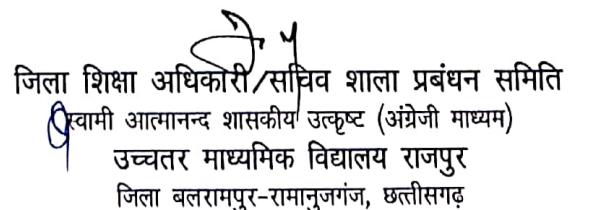 जिला शिक्षा अधिकारी/सचिव शाला प्रबंधन समिति
स्वामी आत्मानन्द शासकीय उत्कृष्ट (अंग्रेजी माध्यम)
उच्चतर माध्यमिक विद्यालय राजपुर
जिला बलरामपुर-रामानुजगंज, छत्तीसगढ़